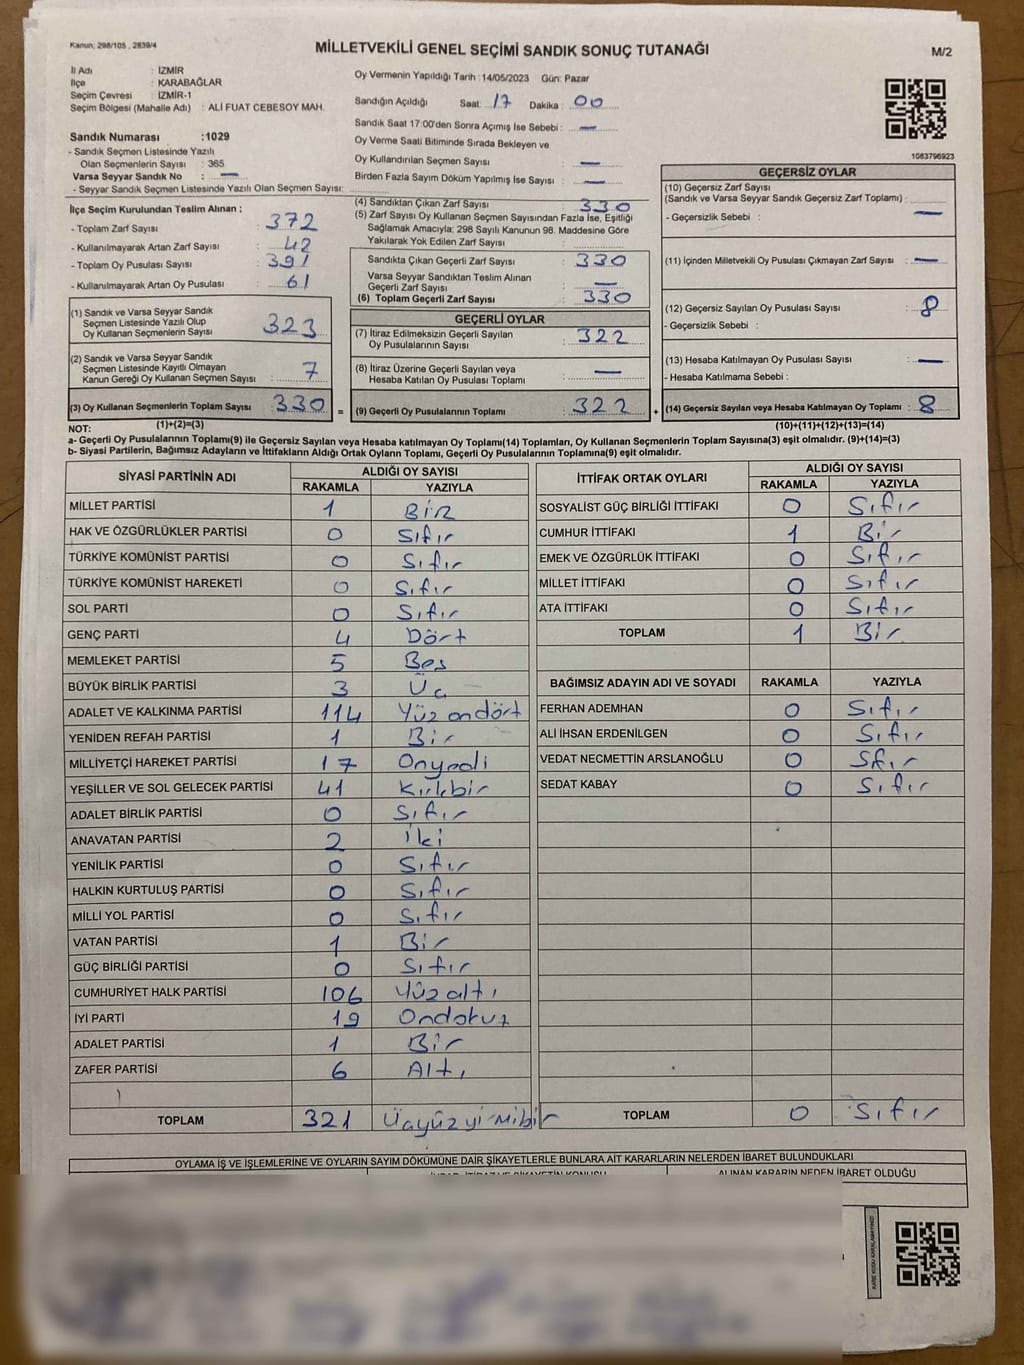 Kanun; 298/105 , 2839/4
MİLLETVEKİLİ GENEL SEÇİMİ SANDIK SONUÇ TUTANAĞI
M/2
İl Adı : İZMİR
İlçe : KARABAĞLAR
Seçim Çevresi : İZMİR-1
Seçim Bölgesi (Mahalle Adı) : ALİ FUAT CEBESOY MAH.
Sandık Numarası :1029
- Sandık Seçmen Listesinde Yazılı
Olan Seçmenlerin Sayısı : 365
Varsa Seyyar Sandık No : —
- Seyyar Sandık Seçmen Listesinde Yazılı Olan Seçmen Sayısı:
Oy Vermenin Yapıldığı Tarih : 14/05/2023 Gün: Pazar
Sandığın Açıldığı Saat: 17 Dakika : 00
Sandık Saat 17:00'den Sonra Açımış İse Sebebi : —
Oy Verme Saati Bitiminde Sırada Bekleyen ve
Oy Kullandırılan Seçmen Sayısı : —
Birden Fazla Sayım Döküm Yapılmış İse Sayısı : —
1083796923
İlçe Seçim Kurulundan Teslim Alınan :
- Toplam Zarf Sayısı : 372
- Kullanılmayarak Artan Zarf Sayısı : 42
- Toplam Oy Pusulası Sayısı : 391
- Kullanılmayarak Artan Oy Pusulası : 61
(1) Sandık ve Varsa Seyyar Sandık
Seçmen Listesinde Yazılı Olup
Oy Kullanan Seçmenlerin Sayısı : 323
(2) Sandık ve Varsa Seyyar Sandık
Seçmen Listesinde Kayıtlı Olmayan
Kanun Gereği Oy Kullanan Seçmen Sayısı : 7
(3) Oy Kullanan Seçmenlerin Toplam Sayısı : 330 =
(1)+(2)=(3)
(4) Sandıktan Çıkan Zarf Sayısı : 330
(5) Zarf Sayısı Oy Kullanan Seçmen Sayısından Fazla İse, Eşitliği
Sağlamak Amacıyla; 298 Sayılı Kanunun 98. Maddesine Göre
Yakılarak Yok Edilen Zarf Sayısı :
Sandıkta Çıkan Geçerli Zarf Sayısı : 330
Varsa Seyyar Sandıktan Teslim Alınan
Geçerli Zarf Sayısı : —
(6) Toplam Geçerli Zarf Sayısı : 330
GEÇERLİ OYLAR
(7) İtiraz Edilmeksizin Geçerli Sayılan
Oy Pusulalarının Sayısı : 322
(8) İtiraz Üzerine Geçerli Sayılan veya
Hesaba Katılan Oy Pusulası Toplamı : —
(9) Geçerli Oy Pusulalarının Toplamı : 322 +
GEÇERSİZ OYLAR
(10) Geçersiz Zarf Sayısı
(Sandık ve Varsa Seyyar Sandık Geçersiz Zarf Toplamı) :
- Geçersizlik Sebebi : —
(11) İçinden Milletvekili Oy Pusulası Çıkmayan Zarf Sayısı : —
(12) Geçersiz Sayılan Oy Pusulası Sayısı : 8
- Geçersizlik Sebebi :
(13) Hesaba Katılmayan Oy Pusulası Sayısı : —
- Hesaba Katılmama Sebebi :
(14) Geçersiz Sayılan veya Hesaba Katılmayan Oy Toplamı : 8
(10)+(11)+(12)+(13)=(14)
NOT:
a- Geçerli Oy Pusulalarının Toplamı(9) ile Geçersiz Sayılan veya Hesaba katılmayan Oy Toplamı(14) Toplamları, Oy Kullanan Seçmenlerin Toplam Sayısına(3) eşit olmalıdır. (9)+(14)=(3)
b- Siyasi Partilerin, Bağımsız Adayların ve İttifakların Aldığı Ortak Oyların Toplamı, Geçerli Oy Pusulalarının Toplamına(9) eşit olmalıdır.
SİYASİ PARTİNİN ADI ALDIĞI OY SAYISI
RAKAMLA YAZIYLA
MİLLET PARTİSİ 1 BİR
HAK VE ÖZGÜRLÜKLER PARTİSİ 0 Sıfır
TÜRKİYE KOMÜNİST PARTİSİ 0 Sıfır
TÜRKİYE KOMÜNİST HAREKETİ 0 Sıfır
SOL PARTİ 0 Sıfır
GENÇ PARTİ 4 Dört
MEMLEKET PARTİSİ 5 Beş
BÜYÜK BİRLİK PARTİSİ 3 Üç
ADALET VE KALKINMA PARTİSİ 114 Yüz ondört
YENİDEN REFAH PARTİSİ 1 Bir
MİLLİYETÇİ HAREKET PARTİSİ 17 Onyedi
YEŞİLLER VE SOL GELECEK PARTİSİ 41 Kırkbir
ADALET BİRLİK PARTİSİ 0 Sıfır
ANAVATAN PARTİSİ 2 İki
YENİLİK PARTİSİ 0 Sıfır
HALKIN KURTULUŞ PARTİSİ 0 Sıfır
MİLLİ YOL PARTİSİ 0 Sıfır
VATAN PARTİSİ 1 Bir
GÜÇ BİRLİĞİ PARTİSİ 0 Sıfır
CUMHURİYET HALK PARTİSİ 106 Yüzaltı
İYİ PARTİ 19 Ondokuz
ADALET PARTİSİ 1 Bir
ZAFER PARTİSİ 6 Altı
TOPLAM 321 Üçyüzyirmibir
İTTİFAK ORTAK OYLARI ALDIĞI OY SAYISI
RAKAMLA YAZIYLA
SOSYALİST GÜÇ BİRLİĞİ İTTİFAKI 0 Sıfır
CUMHUR İTTİFAKI 1 Bir
EMEK VE ÖZGÜRLÜK İTTİFAKI 0 Sıfır
MİLLET İTTİFAKI 0 Sıfır
ATA İTTİFAKI 0 Sıfır
TOPLAM 1 Bir
BAĞIMSIZ ADAYIN ADI VE SOYADI RAKAMLA YAZIYLA
FERHAN ADEMHAN 0 Sıfır
ALİ İHSAN ERDENİLGEN 0 Sıfır
VEDAT NECMETTİN ARSLANOĞLU 0 Sfır
SEDAT KABAY 0 Sıfır
TOPLAM 0 Sıfır
OYLAMA İŞ VE İŞLEMLERİNE VE OYLARIN SAYIM DÖKÜMÜNE DAİR ŞİKAYETLERLE BUNLARA AİT KARARLARIN NELERDEN İBARET BULUNDUKLARI
ALINAN KARARIN NEDEN İBARET OLDUĞU